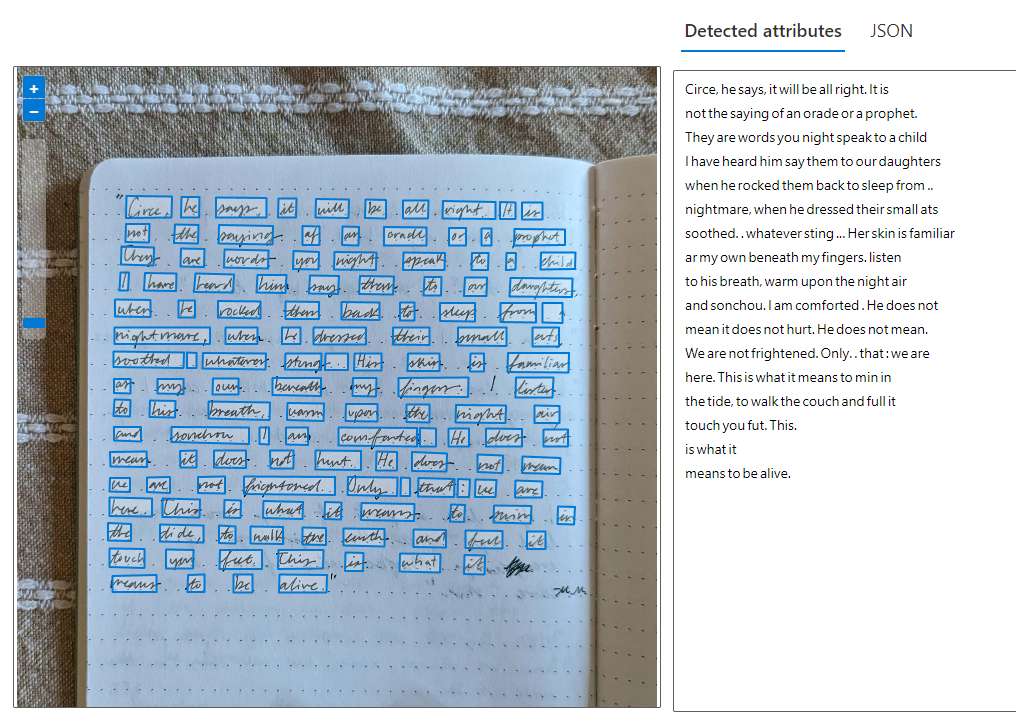 Detected attributes JSON
+
−
"Circe, he says, it will be all right. It is
not the saying of an oracle or a prophet.
They are words you might speak to a child
I have heard him say them to our daughters,
when he rocked them back to sleep from a
nightmare, when he dressed their small cuts,
soothed whatever stung. His skin is familiar
as my own beneath my fingers. I listen
to his breath, warm upon the night air
and somehow I am comforted. He does not
mean it does not hurt. He does not mean
we are not frightened. Only that: we are
here. This is what it means to swim in
the tide, to walk the earth and feel it
touch your feet. This is what it
means to be alive."
Circe, he says, it will be all right. It is
not the saying of an orade or a prophet.
They are words you night speak to a child
I have heard him say them to our daughters
when he rocked them back to sleep from ..
nightmare, when he dressed their small ats
soothed. . whatever sting ... Her skin is familiar
ar my own beneath my fingers. listen
to his breath, warm upon the night air
and sonchou. I am comforted . He does not
mean it does not hurt. He does not mean.
We are not frightened. Only. . that : we are
here. This is what it means to min in
the tide, to walk the couch and full it
touch you fut. This.
is what it
means to be alive.